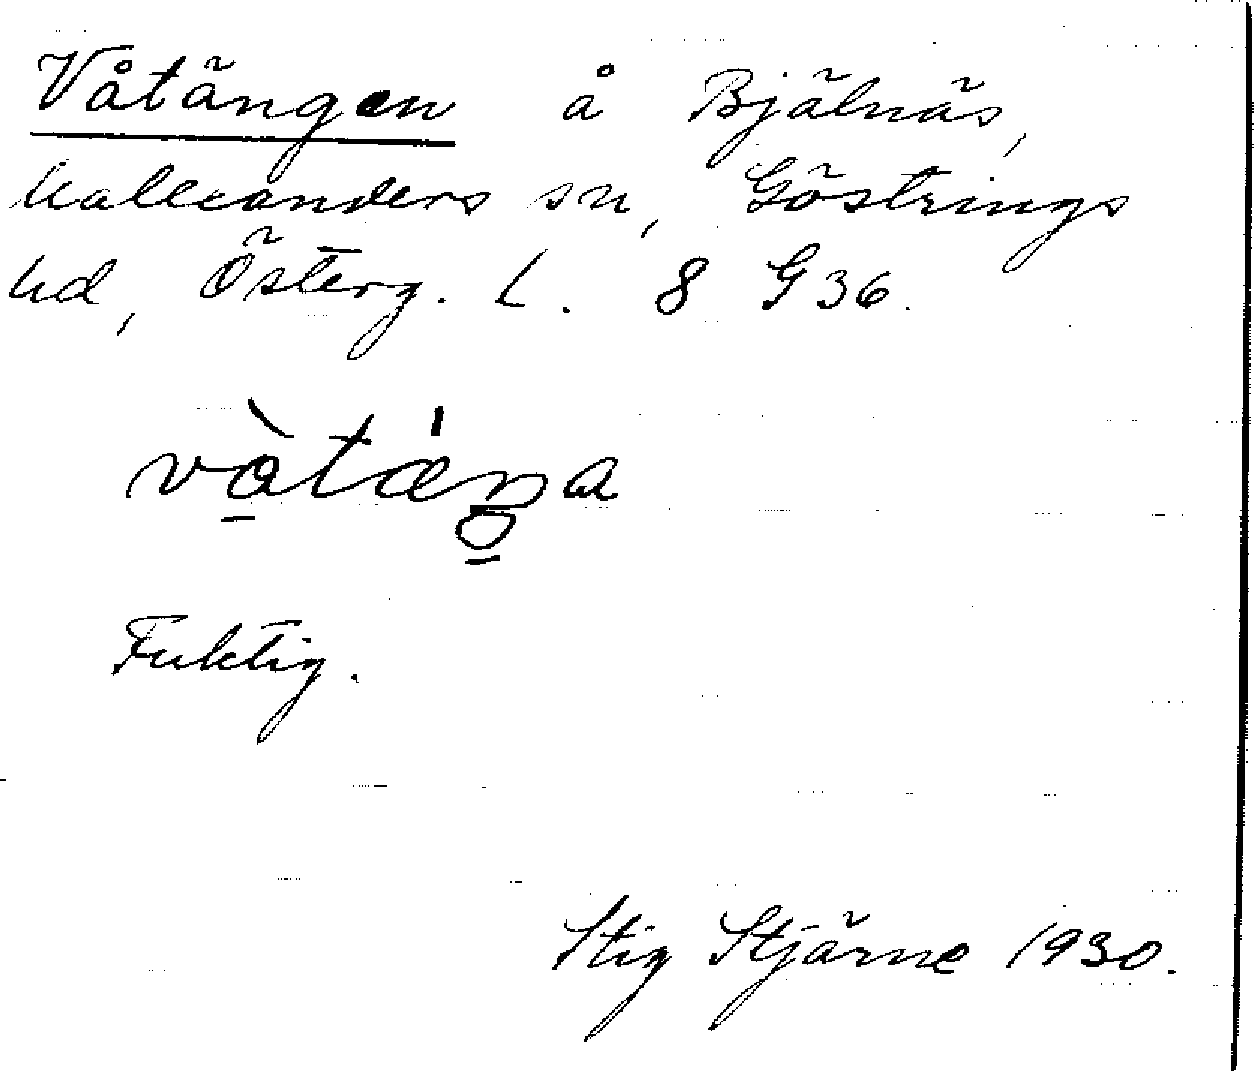 Våtängen å Bjälnäs,
Kalleanders sn, Göstrings
hd, Österg. L. 8 G 36.
Fuktig.
Stig Stjärne 1930.